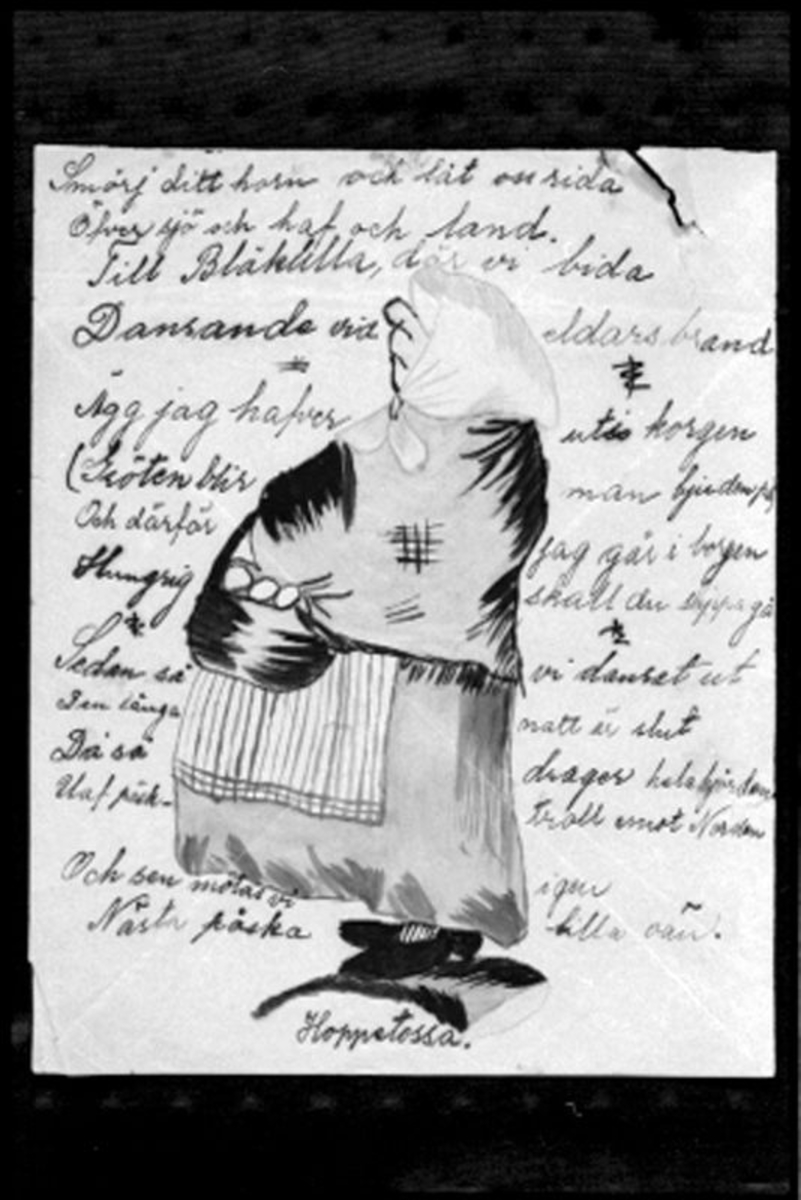 Smörj ditt horn och låt oss rida
Öfver sjö och haf och land.
Till Blåkulla, där vi bida
Dansande vid eldars brand
Ägg jag hafver uti korgen
(Gröten blir man bjuden på
Och därför jag går i borgen
Hungrig skall du slippa gå
Sedan så vi dansat ut
Den långa natt är slut
Då så drager hela hjorden
Utaf påsk- troll emot Norden
Och sen mötas vi igen
Nästa påska lilla vän.
Hoppetossa.